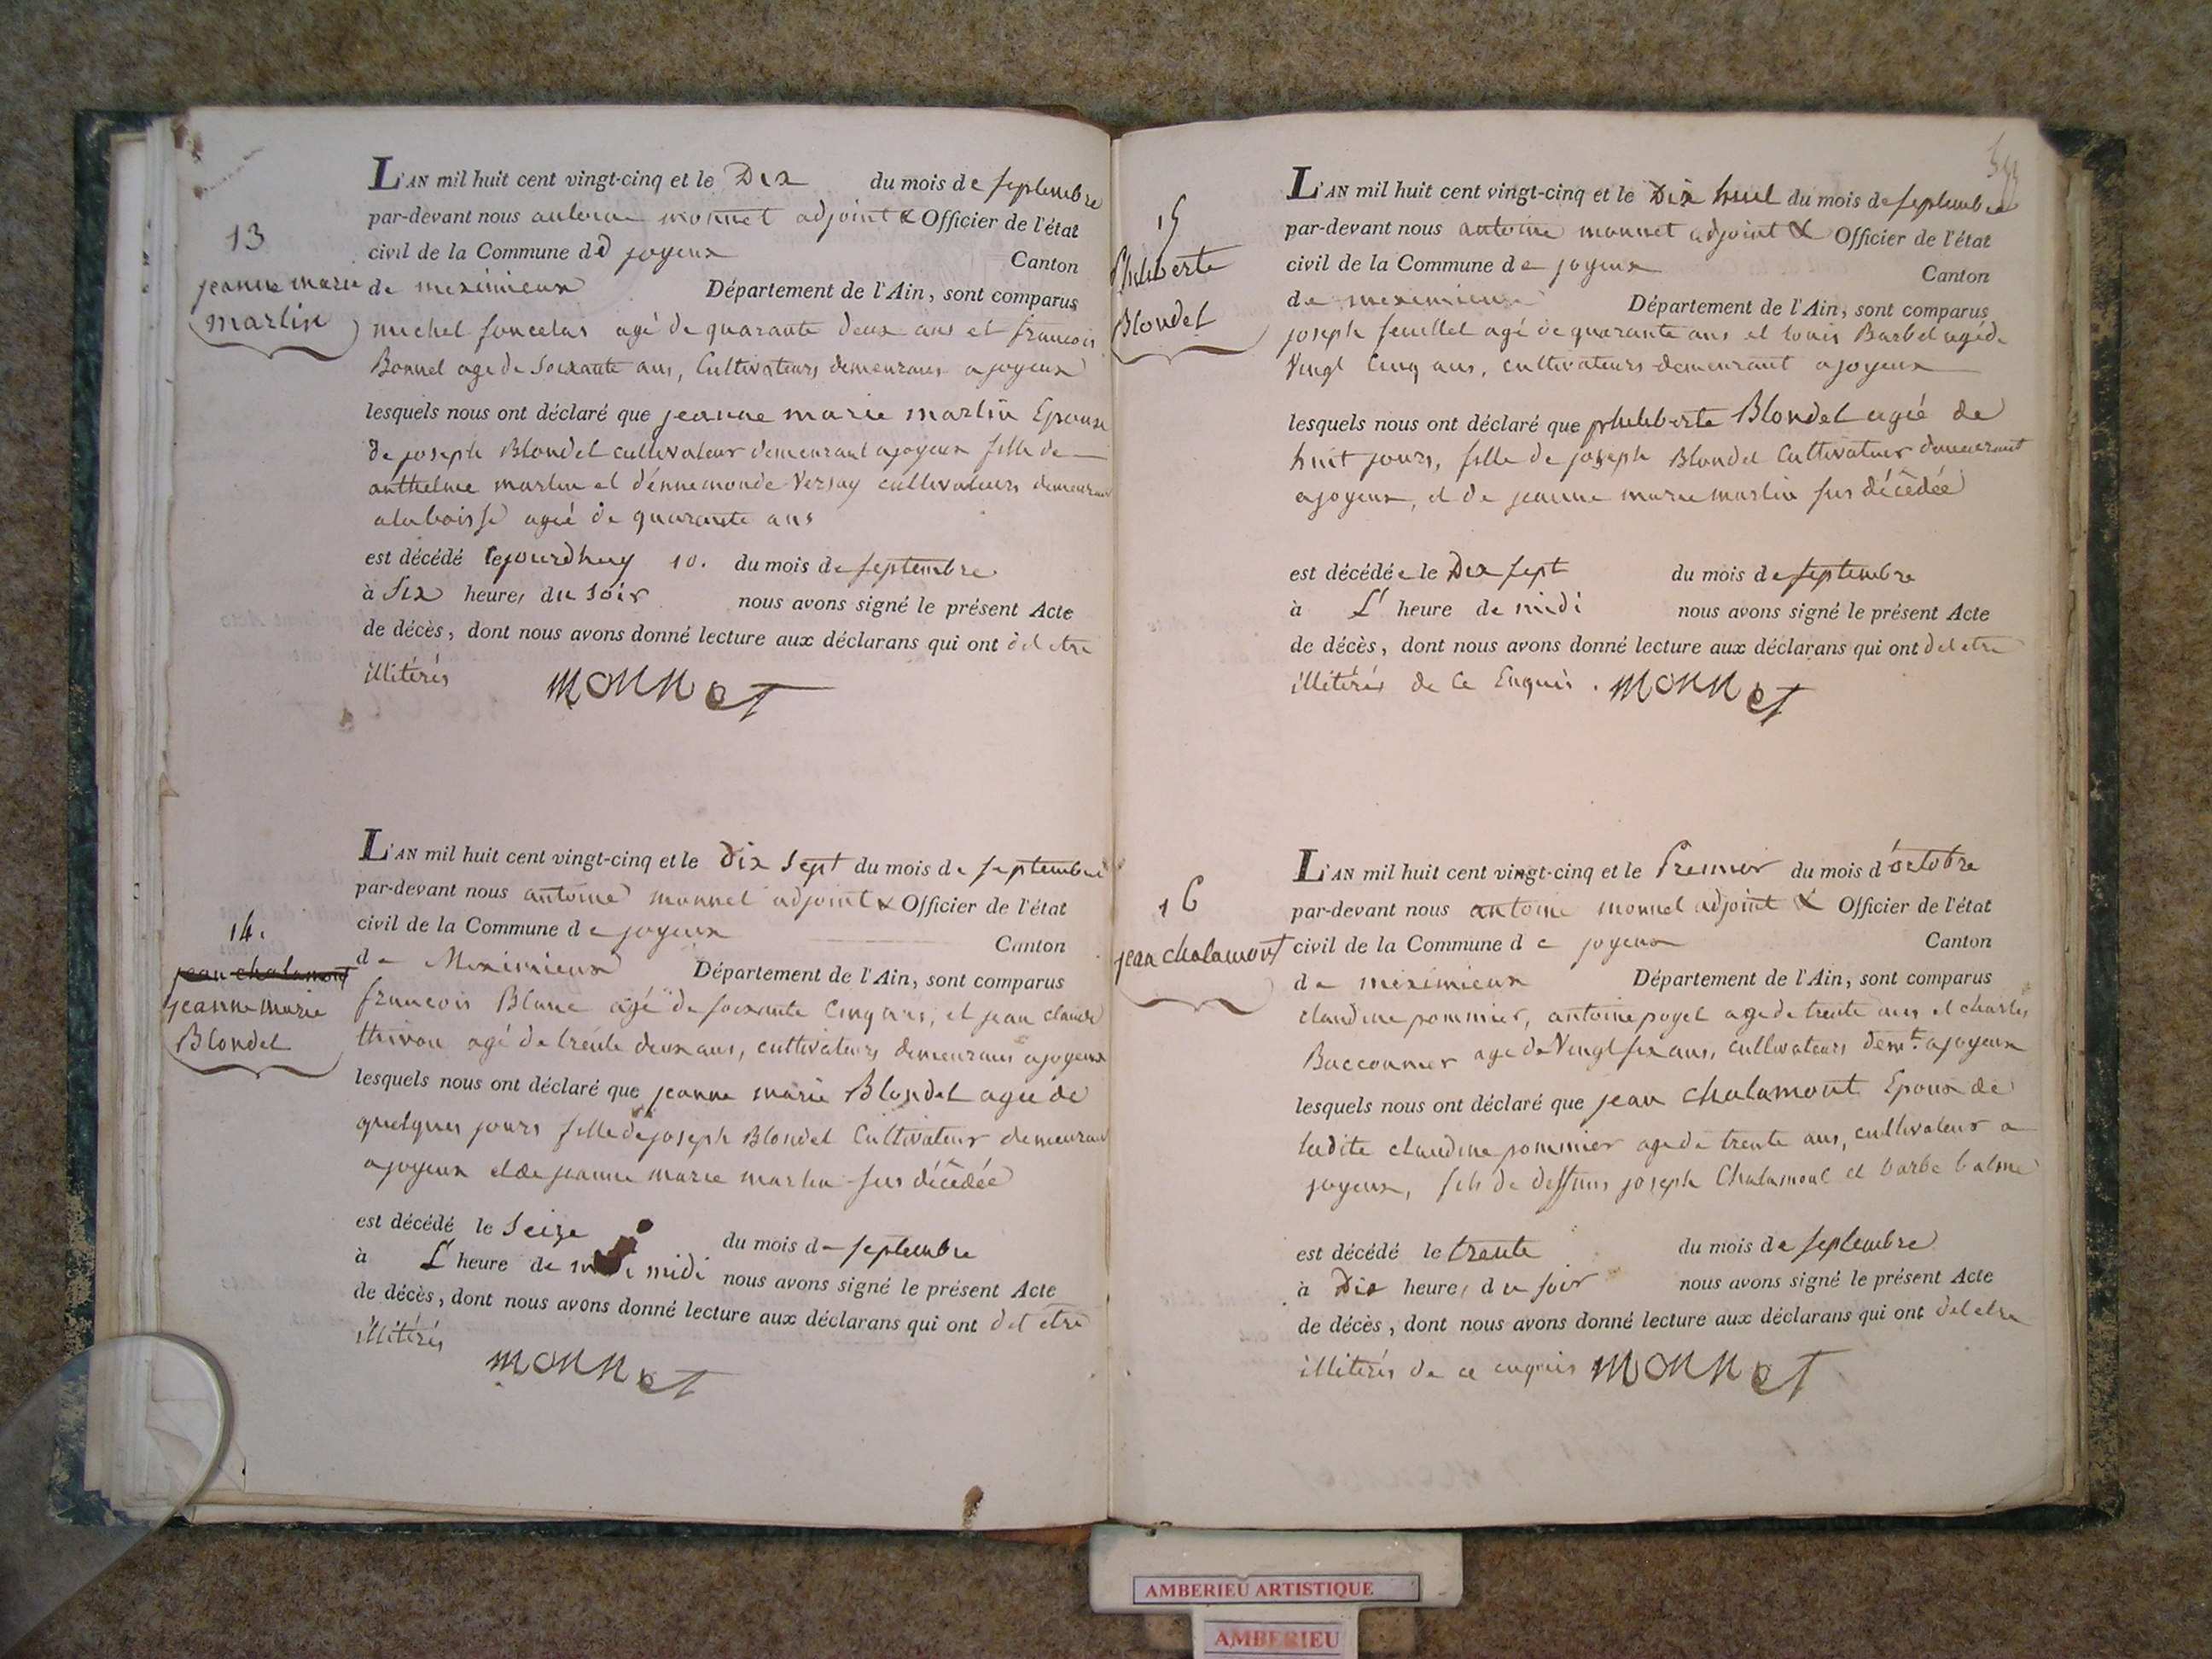 13
jeanne marie
martin
L'AN mil huit cent vingt-cinq et le Dix du mois de septembre
par-devant nous antoine monnet adjoint & Officier de l'état
civil de la Commune de joyeux Canton
de meximieux Département de l'Ain, sont comparus
michel foncelas agé de quarante deux ans et francois
Bonnel age de Soixante ans, Cultivateurs demeurans a joyeux
lesquels nous ont déclaré que jeanne marie martin Epouse
de joseph Blondel cultivateur demeurant a joyeux fille de
anthelme martin et d'énnemonde Versay cultivateurs demeurant
a laboisse ageé de quarante ans
est décédé cejourdhuy 10. du mois de septembre
à Six heures du soir nous avons signé le présent Acte
de décès, dont nous avons donné lecture aux déclarans qui ont dit etre
illitérés monnet
14.
jean chalamont
jeanne marie
Blondel
L'AN mil huit cent vingt-cinq et le dix sept du mois de septembre
par-devant nous antoine monnet adjoint & Officier de l'état
civil de la Commune de joyeux Canton
de Meximieux Département de l'Ain, sont comparus
francois Blanc agé de soixante Cinq ans, et jean claude
thivon agé de trente deux ans, cultivateurs demeurans a joyeux
lesquels nous ont déclaré que jeanne marie Blondel ageé de
quelques jours fille de joseph Blondel Cultivateur demeurant
a joyeux et de jeanne marie martin fus décédée
est décédé le Seize du mois de septembre
à L' heure de midi nous avons signé le présent Acte
de décès, dont nous avons donné lecture aux déclarans qui ont dit etre
illitérés
monnet
15
Philiberte
Blondel
L'AN mil huit cent vingt-cinq et le Dix huit du mois de septembre
par-devant nous antoine monnet adjoint & Officier de l'état
civil de la Commune de joyeux Canton
de meximieux Département de l'Ain, sont comparus
joseph feuillet agé de quarante ans et louis Barbet agé de
Vingt Cinq ans, cultivateurs demeurant a joyeux
lesquels nous ont déclaré que philiberte Blondel ageé de
huit jours, fille de joseph Blondel Cultivateur demeurant
a joyeux, et de jeanne marie martin fus décédée
est décédée le Dix sept du mois de septembre
à L' heure de midi nous avons signé le présent Acte
de décès, dont nous avons donné lecture aux déclarans qui ont dit etre
illitérés de Ce Enquis. monnet
16
jean chalamont
L'AN mil huit cent vingt-cinq et le Premier du mois d'octobre
par-devant nous antoine monnet adjoint & Officier de l'état
civil de la Commune de joyeux Canton
de meximieux Département de l'Ain, sont comparus
claudine pommier, antoine poyet age de trente ans et charles
Bacconnier age de Vingt six ans, cultivateurs demt. a joyeux
lesquels nous ont déclaré que jean chalamont Epoux de
ladite claudine pommier age de trente ans, cultivateur a
joyeux, fils de deffunts joseph Chalamont et barbe balme
est décédé le trente du mois de septembre
à Dix heures du soir nous avons signé le présent Acte
de décès, dont nous avons donné lecture aux déclarans qui ont dit etre
illitérés de ce enquis monnet
AMBERIEU ARTISTIQUE
AMBERIEU